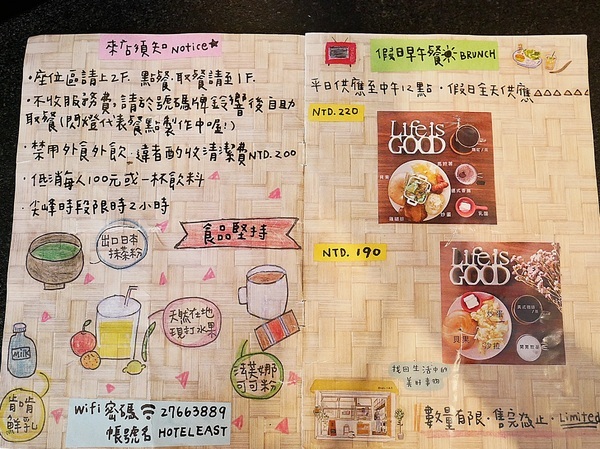 來店須知 Notice★
・座位區請上2F. 點餐.取餐請至1F.
・不收服務費,請於號碼牌鈴響後自助
取餐(閃燈代表餐點製作中喔!)
・禁用外食外飲.違者酌收清潔費NTD.200
・低消每人100元或一杯飲料
・尖峰時段限時2小時
食品堅持
出口日本
抹茶粉
天然在地
現打水果
法芙娜
可可粉
milk
肯啃
鮮乳
Wifi 密碼 29663889
帳號名 HOTELEAST
假日早午餐 BRUNCH
平日供應至中午12點・假日全天供應
NTD.220
Life is
GOOD
貝果
沙拉
乳酪
NTD. 190
Life is
GOOD
炒蛋
貝果
沙拉
找回生活中的
美好事物
數量有限・售完為止・Limited